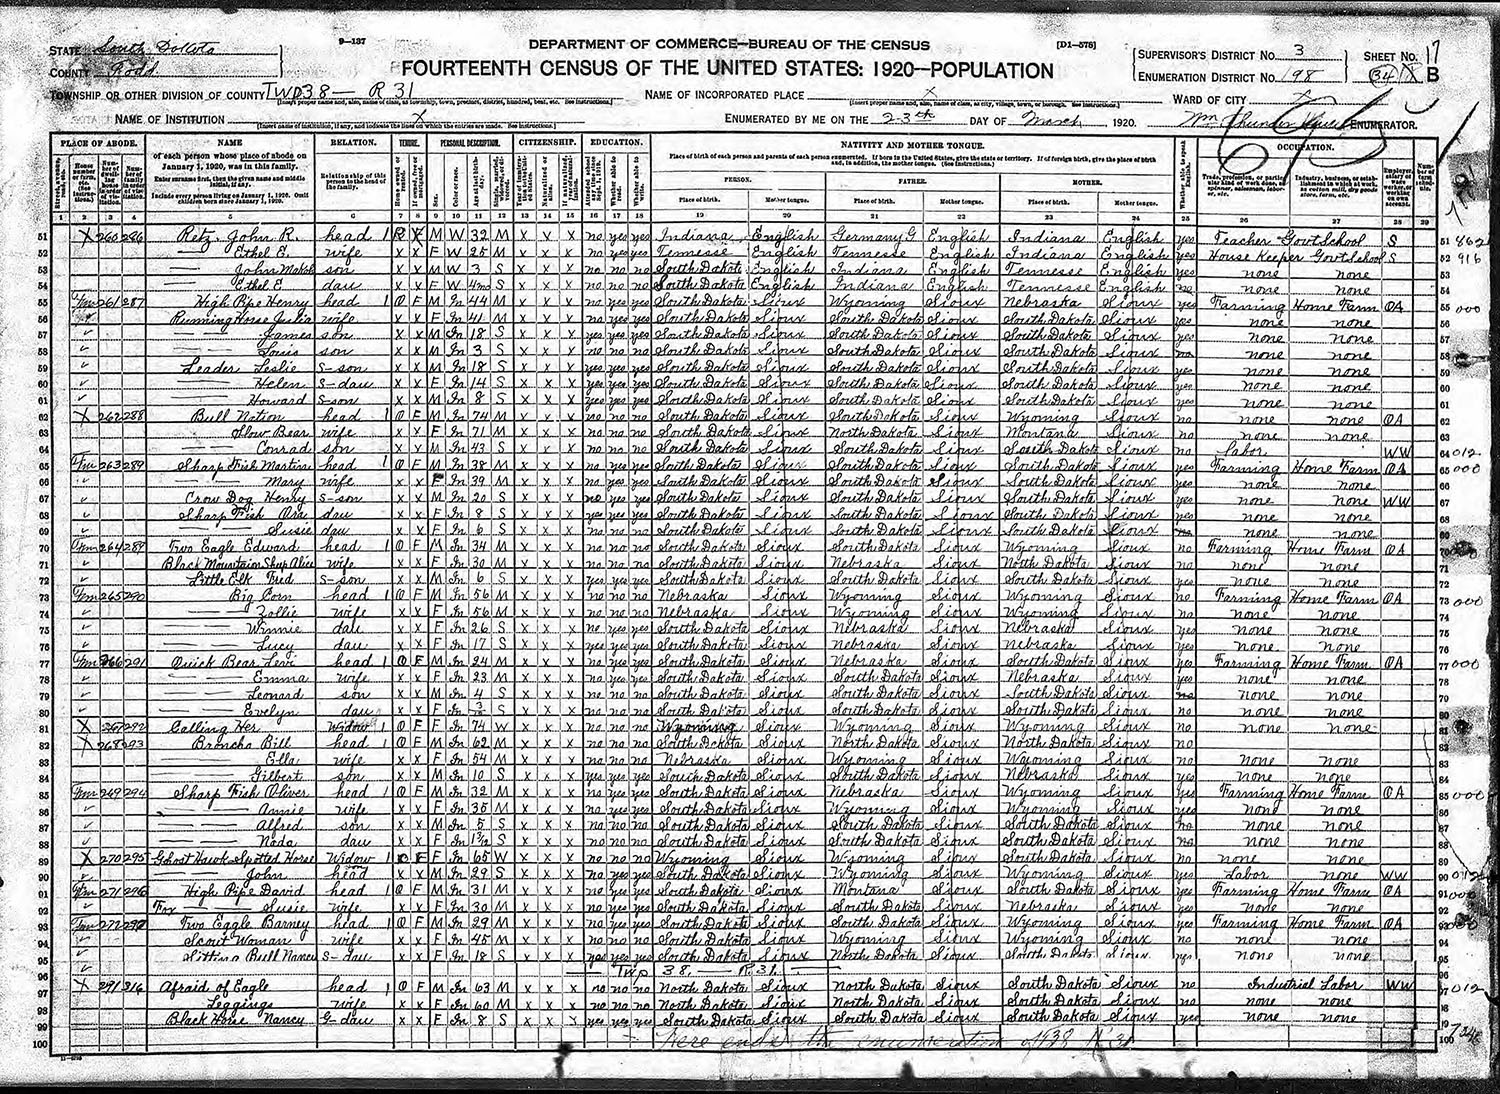 9-137
DEPARTMENT OF COMMERCE—BUREAU OF THE CENSUS
[D1-578]
STATE South Dakota
COUNTY Todd
FOURTEENTH CENSUS OF THE UNITED STATES: 1920—POPULATION
SUPERVISOR'S DISTRICT No. 3 SHEET No. 17
ENUMERATION DISTRICT No. 198 B
TOWNSHIP OR OTHER DIVISION OF COUNTY Twp 38 — R 31
NAME OF INCORPORATED PLACE X
WARD OF CITY X
NAME OF INSTITUTION X
ENUMERATED BY ME ON THE 23rd DAY OF March 1920. Wm ENUMERATOR.
PLACE OF ABODE. NAME RELATION. TENURE. PERSONAL DESCRIPTION. CITIZENSHIP. EDUCATION. NATIVITY AND MOTHER TONGUE. OCCUPATION.
of each person whose place of abode on January 1, 1920, was in this family.
Enter surname first, then the given name and middle initial, if any.
Include every person living on January 1, 1920. Omit children born since January 1, 1920.
Relationship of this person to the head of the family.
Place of birth of each person and parents of each person enumerated. If born in the United States, give the state or territory. If of foreign birth, give the place of birth and, in addition, the mother tongue. (See Instructions.)
PERSON. FATHER. MOTHER.
Place of birth. Mother tongue. Place of birth. Mother tongue. Place of birth. Mother tongue.
1 2 3 4 5 6 7 8 9 10 11 12 13 14 15 16 17 18 19 20 21 22 23 24 25 26 27 28 29
51 X 260 286 Retz, John R. head 1 R X M W 32 M X X X no yes yes Indiana English Germany G English Indiana English yes Teacher Govt School S 51
52 — Ethel E. wife X X F W 25 M X X X no yes yes Tennesse English Tennesse English Indiana English yes House Keeper Govt School S 52 916
53 — John son X X M W 3 S X X X no no no South Dakota English Indiana English Tennesse English yes none none 53
54 — Ethel E dau X X F W S X X X no no no South Dakota English Indiana English Tennesse English none none 54
55 Fm 261 287 High Pipe Henry head 1 O F M In 44 M X X X no yes yes South Dakota Sioux Wyoming Sioux Nebraska Sioux yes Farming Home Farm OA 55 000
56 Running Horse Julia wife X X F In 41 M X X X no yes yes South Dakota Sioux South Dakota Sioux South Dakota Sioux yes none none 56
57 — James son X X M In 18 S X X X yes yes yes South Dakota Sioux South Dakota Sioux South Dakota Sioux yes none none 57
58 — Louis son X X M In 3 S X X X no no no South Dakota Sioux South Dakota Sioux South Dakota Sioux none none 58
59 Leader Leslie S-son X X M In 18 S X X X yes yes yes South Dakota Sioux South Dakota Sioux South Dakota Sioux yes none none 59
60 — Helen S-dau X X F In 14 S X X X yes yes yes South Dakota Sioux South Dakota Sioux South Dakota Sioux yes none none 60
61 — Howard S-son X X In 8 S X X X yes yes yes South Dakota Sioux South Dakota Sioux South Dakota Sioux yes none none 61
62 X 262 288 Bull Nation head 1 O F M In 74 M X X X no no no South Dakota Sioux South Dakota Sioux Wyoming Sioux no none none OA 62
63 — Slow Bear wife X X F In 71 M X X X no no no South Dakota Sioux North Dakota Sioux Montana Sioux no none none 63
64 — Conrad son X X M In 43 S X X X no no no South Dakota Sioux South Dakota Sioux South Dakota Sioux no Labor WW 64 012
65 Fm 263 289 Sharp Fish Martin head 1 O F M In 38 M X X X no yes yes South Dakota Sioux South Dakota Sioux South Dakota Sioux yes Farming Home Farm OA 65 000
66 — Mary wife X X F In 39 M X X X no yes yes South Dakota Sioux South Dakota Sioux South Dakota Sioux yes none none 66
67 Crow Dog Henry S-son X X M In 20 S X X X no yes yes South Dakota Sioux South Dakota Sioux South Dakota Sioux yes none none WW 67
68 Sharp Fish dau X X F In 8 S X X X yes yes yes South Dakota Sioux South Dakota Sioux South Dakota Sioux yes none none 68
69 — Susie dau X X F In 6 S X X X no no no South Dakota Sioux South Dakota Sioux South Dakota Sioux none none 69
70 Fm 264 289 Two Eagle Edward head 1 O F M In 34 M X X X no no no South Dakota Sioux South Dakota Sioux Wyoming Sioux no Farming Home Farm OA 70
71 Black Mountain Shup Alice wife X X F In 30 M X X X no no no South Dakota Sioux Nebraska Sioux North Dakota Sioux no none none 71
72 Little Elk Fred S-son X X M In 6 S X X X yes yes yes South Dakota Sioux South Dakota Sioux South Dakota Sioux yes none none 72
73 Fm 265 290 Big Corn head 1 O F M In 56 M X X X no no no Nebraska Sioux Wyoming Sioux Wyoming Sioux no Farming Home Farm OA 73 000
74 — Zollie wife X X F In 56 M X X X no no no Nebraska Sioux Wyoming Sioux Wyoming Sioux no none none 74
75 — Winnie dau X X F In 26 S X X X no yes yes South Dakota Sioux Nebraska Sioux Nebraska Sioux yes none none 75
76 — Lucy dau X X F In 17 S X X X yes yes yes South Dakota Sioux Nebraska Sioux Nebraska Sioux yes none none 76
77 Fm 266 291 Quick Bear Levi head 1 O F M In 24 M X X X no yes yes South Dakota Sioux Nebraska Sioux South Dakota Sioux yes Farming Home Farm OA 77 000
78 — Emma wife X X F In 23 M X X X no yes yes South Dakota Sioux South Dakota Sioux Nebraska Sioux yes none none 78
79 — Leonard son X X M In 4 S X X X no no no South Dakota Sioux South Dakota Sioux South Dakota Sioux none none 79
80 — Evelyn dau X X F In S X X X no no no South Dakota Sioux South Dakota Sioux South Dakota Sioux no none none 80
81 X 267 292 Calling Her Widow 1 O F F In 74 W X X X no no no Wyoming Sioux Wyoming Sioux Wyoming Sioux no none none 81
82 X 268 293 Broncho Bill head 1 O F M In 62 M X X X no no no South Dakota Sioux North Dakota Sioux North Dakota Sioux no 82
83 — Ella wife X X F In 54 M X X X no no no Nebraska Sioux Wyoming Sioux Wyoming Sioux no none none 83
84 — Gilbert son X X M In 10 S X X X yes yes yes South Dakota Sioux South Dakota Sioux Nebraska Sioux yes none none 84
85 Fm 269 294 Sharp Fish Oliver head 1 O F M In 32 M X X X no yes yes South Dakota Sioux Nebraska Sioux Wyoming Sioux yes Farming Home Farm OA 85 000
86 — Annie wife X X F In 35 M X X X no yes yes South Dakota Sioux Wyoming Sioux Wyoming Sioux yes none none 86
87 — Alfred son X X M In 5 S X X X no no no South Dakota Sioux South Dakota Sioux South Dakota Sioux no none none 87
88 — Nada dau X X F In S X X X no no no South Dakota Sioux South Dakota Sioux South Dakota Sioux none none 88
89 X 270 295 Ghost Hawk Spotted Horse Widow 1 O F F In 65 W X X X no no no Wyoming Sioux Wyoming Sioux South Dakota Sioux no none none 89
90 — John head X X M In 29 S X X X no yes yes South Dakota Sioux Wyoming Sioux Wyoming Sioux yes Labor none WW 90 012
91 Fm 271 296 High Pipe David head 1 O F M In 31 M X X X no yes yes South Dakota Sioux Montana Sioux South Dakota Sioux yes Farming Home Farm OA 91 000
92 — Susie wife X X F In 30 M X X X no yes yes South Dakota Sioux South Dakota Sioux Nebraska Sioux yes none none 92
93 Fm 272 297 Two Eagle Barney head 1 O F M In 29 M X X X no yes yes South Dakota Sioux South Dakota Sioux Wyoming Sioux yes Farming Home Farm OA 93
94 Scout Woman wife X X F In 45 M X X X no no no South Dakota Sioux Wyoming Sioux Wyoming Sioux no none none 94
95 Sitting Bull Nancy S-dau X X F In 18 S X X X yes yes yes South Dakota Sioux North Dakota Sioux South Dakota Sioux yes none none 95
96 — Twp 38. — R. 31. — 96
97 X 291 316 Afraid of Eagle head 1 O F M In 63 M X X X no no no North Dakota Sioux North Dakota Sioux South Dakota Sioux no Industrial Labor WW 97 012
98 Leggings wife X X F In 60 M X X X no no no North Dakota Sioux North Dakota Sioux South Dakota Sioux no none none 98
99 Black Horse Nancy G-dau X X F In 8 S X X X yes yes yes South Dakota Sioux South Dakota Sioux South Dakota Sioux yes none none 99
100 Here ends the enumeration of T38 R 31 100